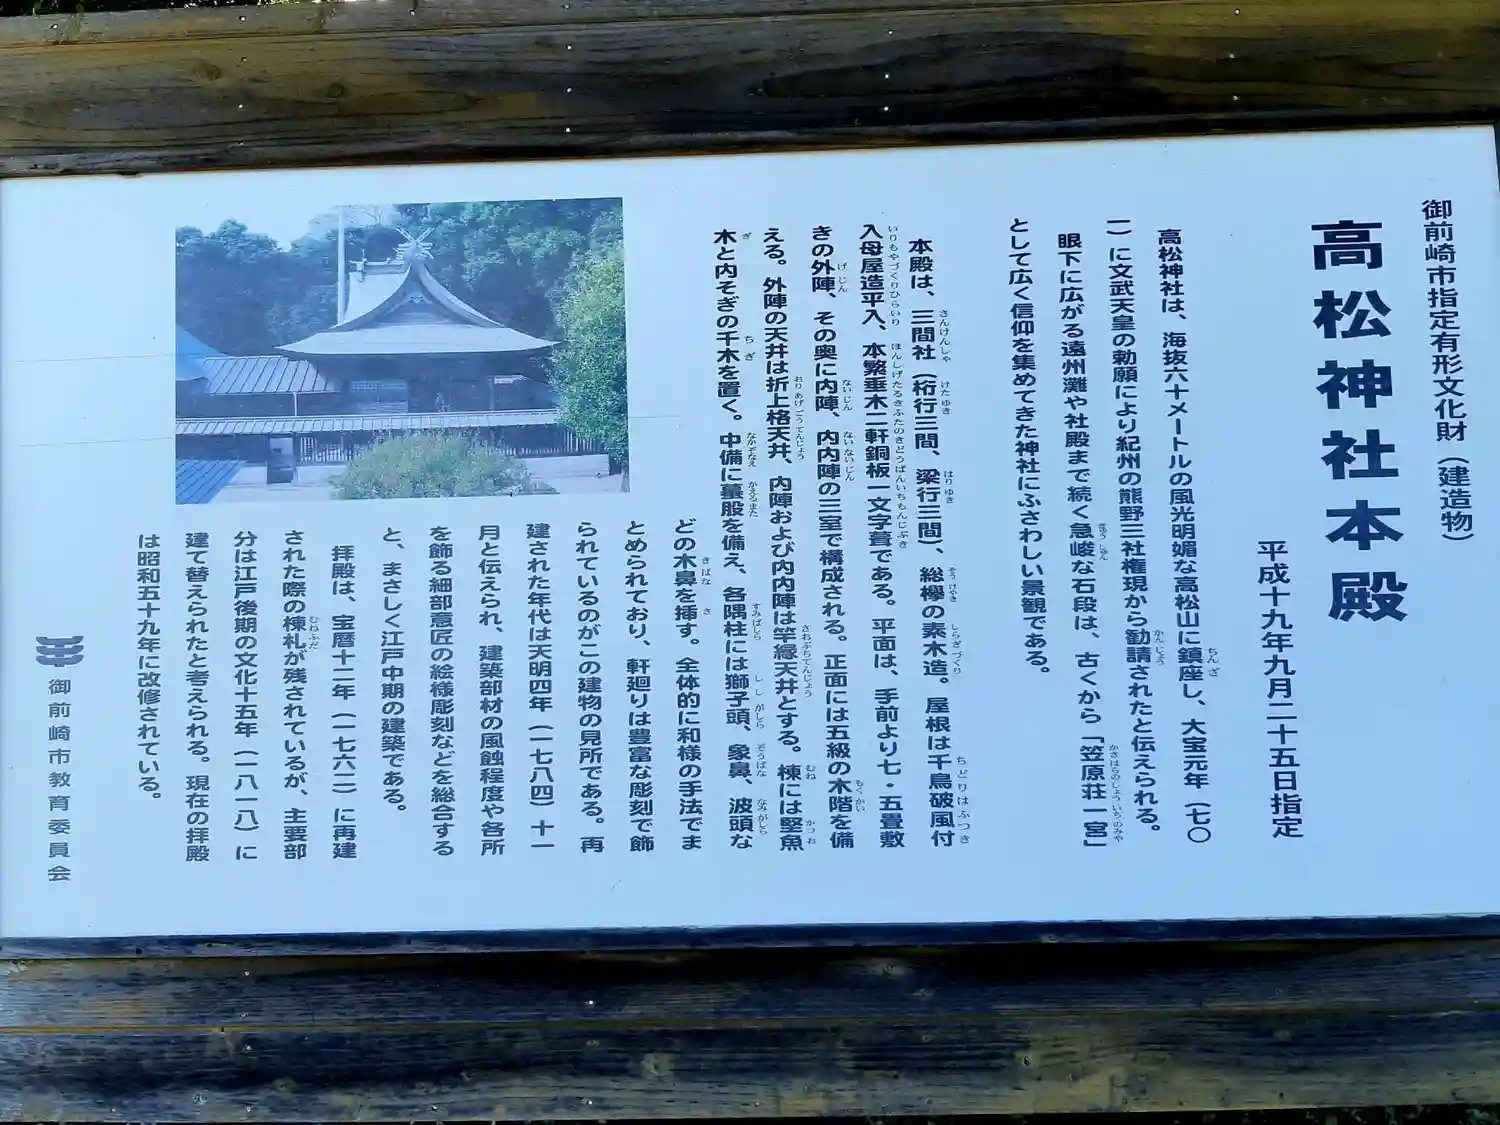 御前崎市指定有形文化財（建造物）
高松神社本殿
平成十九年九月二十五日指定
高松神社は、海抜六十メートルの風光明媚な高松山に鎮座し、大宝元年（七〇
一）に文武天皇の勅願により紀州の熊野三社権現から勧請されたと伝えられる。
眼下に広がる遠州灘や社殿まで続く急峻な石段は、古くから「笠原荘一宮」
として広く信仰を集めてきた神社にふさわしい景観である。
本殿は、三間社（桁行三間、梁行三間）、総欅の素木造。屋根は千鳥破風付
入母屋造平入、本繁垂木二軒銅板一文字葺である。平面は、手前より七・五畳敷
きの外陣、その奥に内陣、内内陣の三室で構成される。正面には五級の木階を備
える。外陣の天井は折上格天井、内陣および内内陣は竿縁天井とする。棟には堅魚
木と内そぎの千木を置く。中備に蟇股を備え、各隅柱には獅子頭、象鼻、波頭な
どの木鼻を挿す。全体的に和様の手法でま
とめられており、軒廻りは豊富な彫刻で飾
られているのがこの建物の見所である。再
建された年代は天明四年（一七八四）十一
月と伝えられ、建築部材の風蝕程度や各所
を飾る細部意匠の絵様彫刻などを総合する
と、まさしく江戸中期の建築である。
拝殿は、宝暦十二年（一七六二）に再建
された際の棟札が残されているが、主要部
分は江戸後期の文化十五年（一八一八）に
建て替えられたと考えられる。現在の拝殿
は昭和五十九年に改修されている。
御前崎市教育委員会